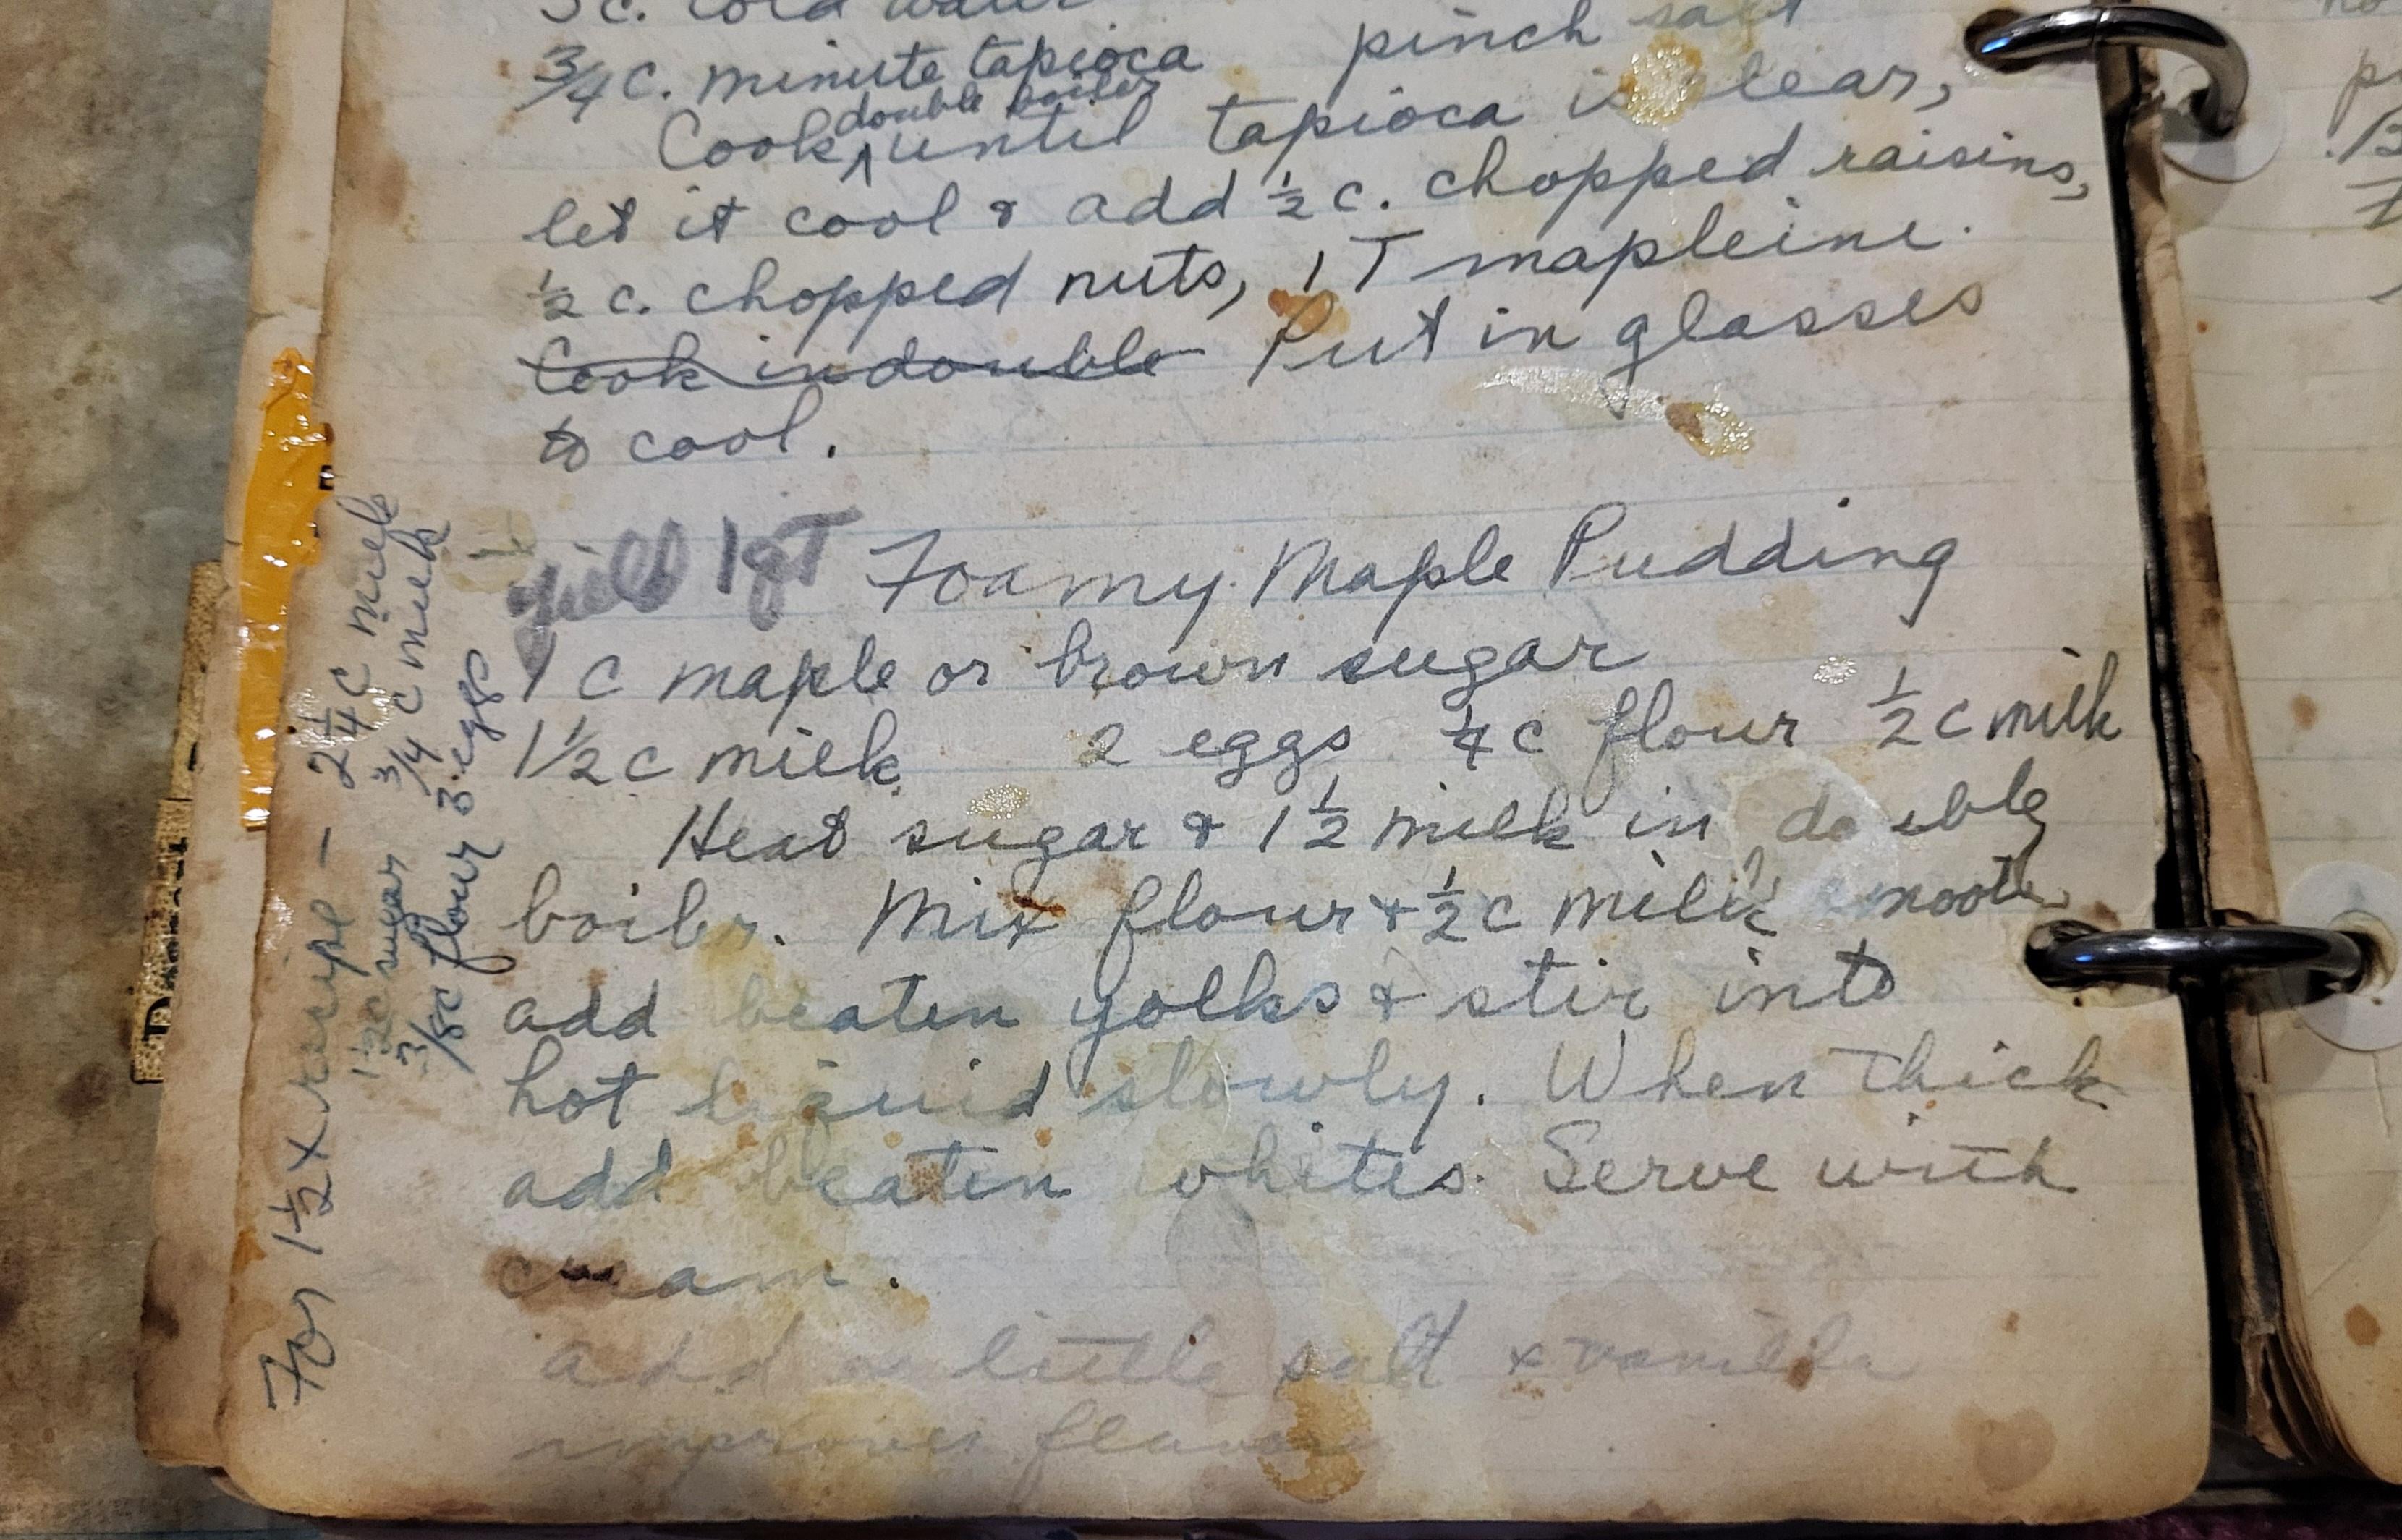 c. cold water
3/4 c. minute tapioca pinch salt
double boiler
Cook ^ until tapioca is clear,
let it cool & add 1/2 c. chopped raisins,
1/2 c. chopped nuts, 1 T mapleine.
Cook in double Put in glasses
to cool.
Yield 1 qT Foamy Maple Pudding
1 c maple or brown sugar
1 1/2 c milk 2 eggs 1/4 c flour 1/2 c milk
Heat sugar & 1 1/2 milk in double
boiler. Mix flour + 1/2 c milk smooth
add beaten yolks & stir into
hot liquid slowly. When thick
add beaten whites. Serve with
cream.
add a little salt & vanilla
improves flavor
For 1 1/2 x recipe — 2 1/4 c milk
1 1/2 c sugar 3/4 c milk
3/8 c flour 3 eggs